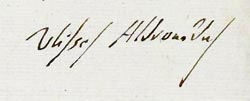 Ulisses Aldrovandus